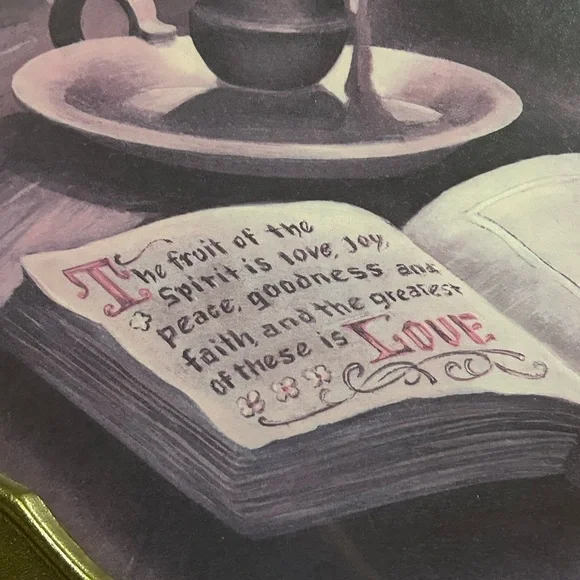 The fruit of the
Spirit is love, Joy,
peace, goodness and
faith, and the greatest
of these is LOVE